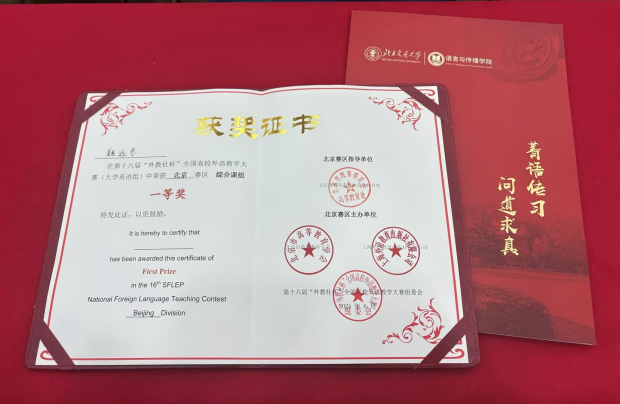 获奖证书
在第十六届"外教社杯"全国高校外语教学大
赛（大学英语组）中荣获 北京 赛区 综合课组
一等奖
特发此证，以资鼓励。
It is hereby to certify that
has been awarded this certificate of
First Prize
in the 16th SFLEP
National Foreign Language Teaching Contest
Beijing Division
北京赛区指导单位
北京赛区主办单位
北京市高等教育学会
上海外语教育出版社有限公司
第十六届"外教社杯"全国高校外语教学大赛组委会
北京交通大学
语言与传播学院
菁语传习
问道求真